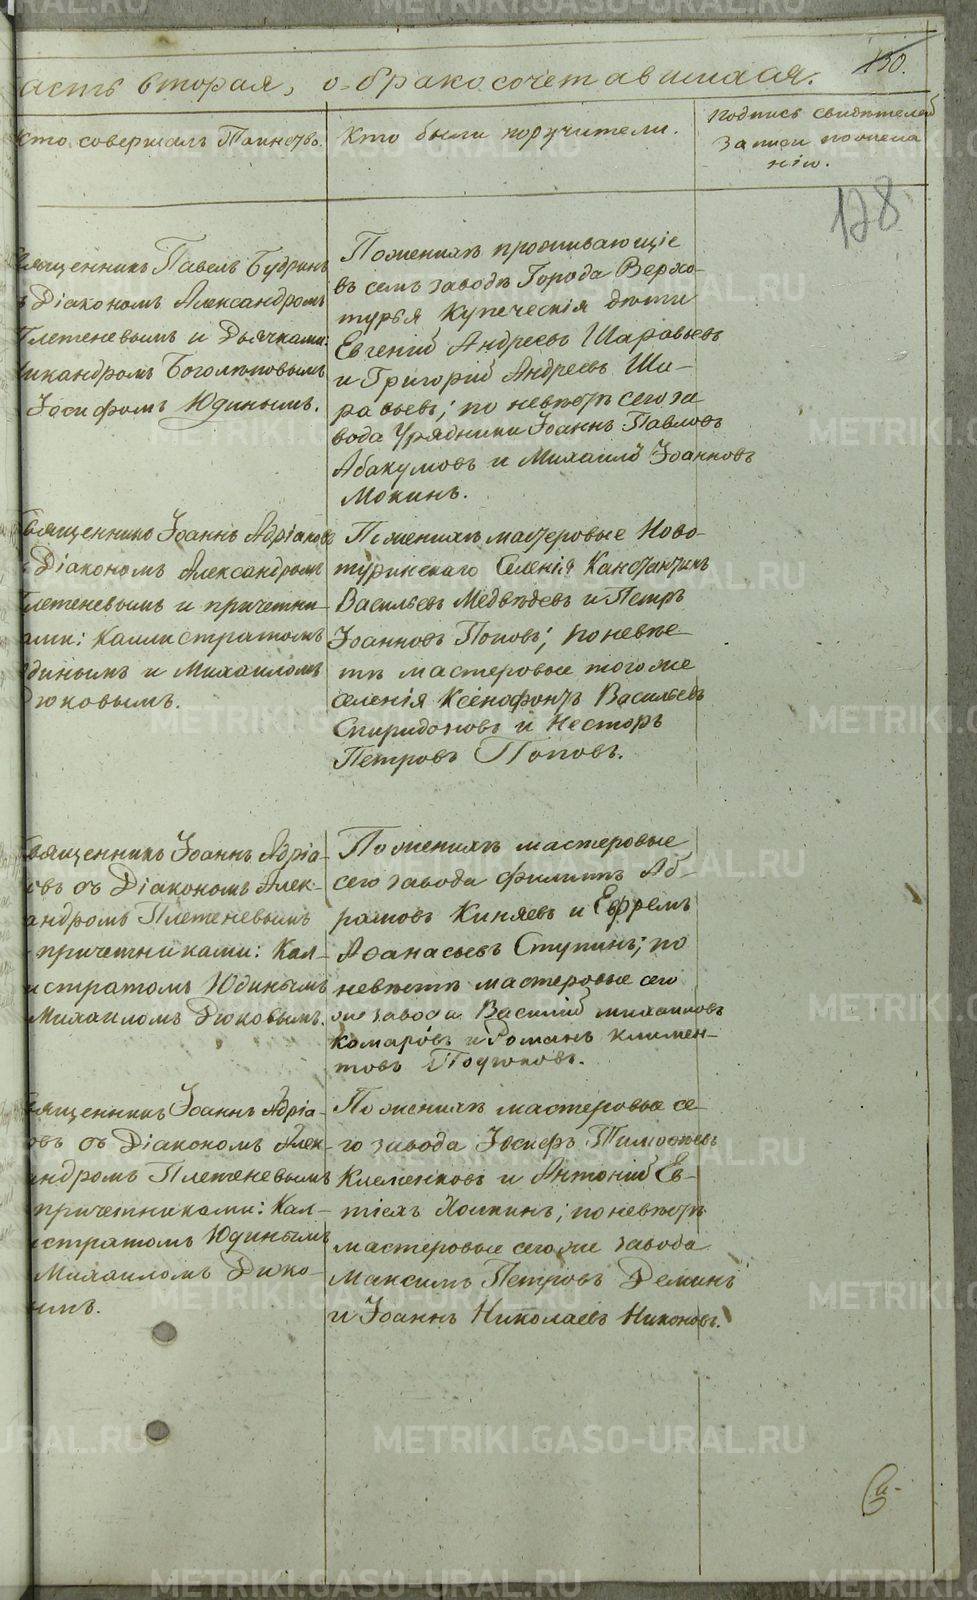 METRIKI.GASO-URAL.RU
асть вторая, о бракосочетавшихся.
130.
Кто совершалъ Таинство.
Кто были поручители.
Подпись свидѣтелей
записи по
нію.
128
вященникъ Павелъ Будринъ
Діакономъ Александромъ
летеневымъ и Дьячками:
икандромъ Боголѣповымъ
Іосифомъ Юдинымъ.
По женихѣ проживающіе
въ семъ заводѣ Города Верхо-
турья Купеческія дѣти
Евгений Андреевъ Шаравьевъ
и Григорій Андреевъ Ша-
равьевъ; по невѣстѣ сего за
вода Урядники Іоаннъ Павловъ
Абакумовъ и Михаилъ Іоанновъ
Мокинъ.
вященникъ Іоаннъ Адріановъ
Діакономъ Александромъ
летеневымъ и причетни-
ами: Каллистратомъ
динымъ и Михаиломъ
юковымъ.
По женихѣ мастеровые Ново-
туринскаго Селенія Канстантинъ
Васильевъ Медвѣдевъ и Петръ
Іоанновъ Поповъ; по невѣс-
тѣ мастеровые того же
селенія Ксенофонтъ Васильевъ
Спиридоновъ и Несторъ
Петровъ Поповъ.
вященникъ Іоаннъ Адріа-
овъ съ Діакономъ Алек-
андромъ Плетеневымъ
причетниками: Кал-
истратомъ Юдинымъ
Михаиломъ Дюковымъ.
По женихѣ мастеровые
сего завода Филиппъ Аб-
рамовъ Киняевъ и Ефремъ
Аѳанасьевъ Ступинъ; по
невѣстѣ мастеровые сего
же завода Василій Михаиловъ
Комаровъ и Романъ Климен-
товъ
вященникъ Іоаннъ Адріа-
овъ съ Діакономъ Алек-
андромъ Плетеневымъ
причетниками: Кал-
истратомъ Юдинымъ
Михаиломъ Дюко-
ымъ.
По женихѣ мастеровые се-
го завода Іосифъ Тимоѳеевъ
Клеменковъ и Антоній Ев-
тіѳь; по невѣстѣ
мастеровые сего же завода
Максимъ Петровъ Деминъ
и Іоаннъ Николаевъ Никоновъ.
METRIKI.GASO-URAL.RU